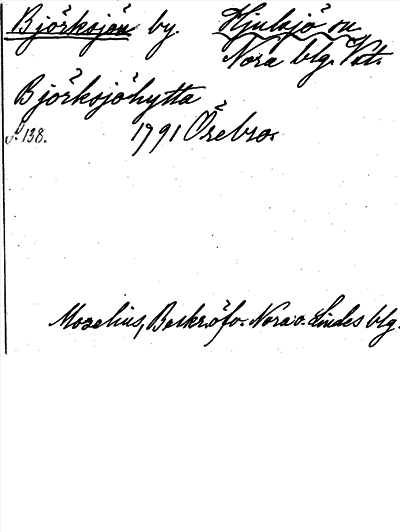 Björksjön by. Hjulsjö sn
Nora blg. Vstm.
Björksjöhytta
S. 138. 1791 Örebro.
Moselius, Beskr. öfv. Nora o. Lindes blg.